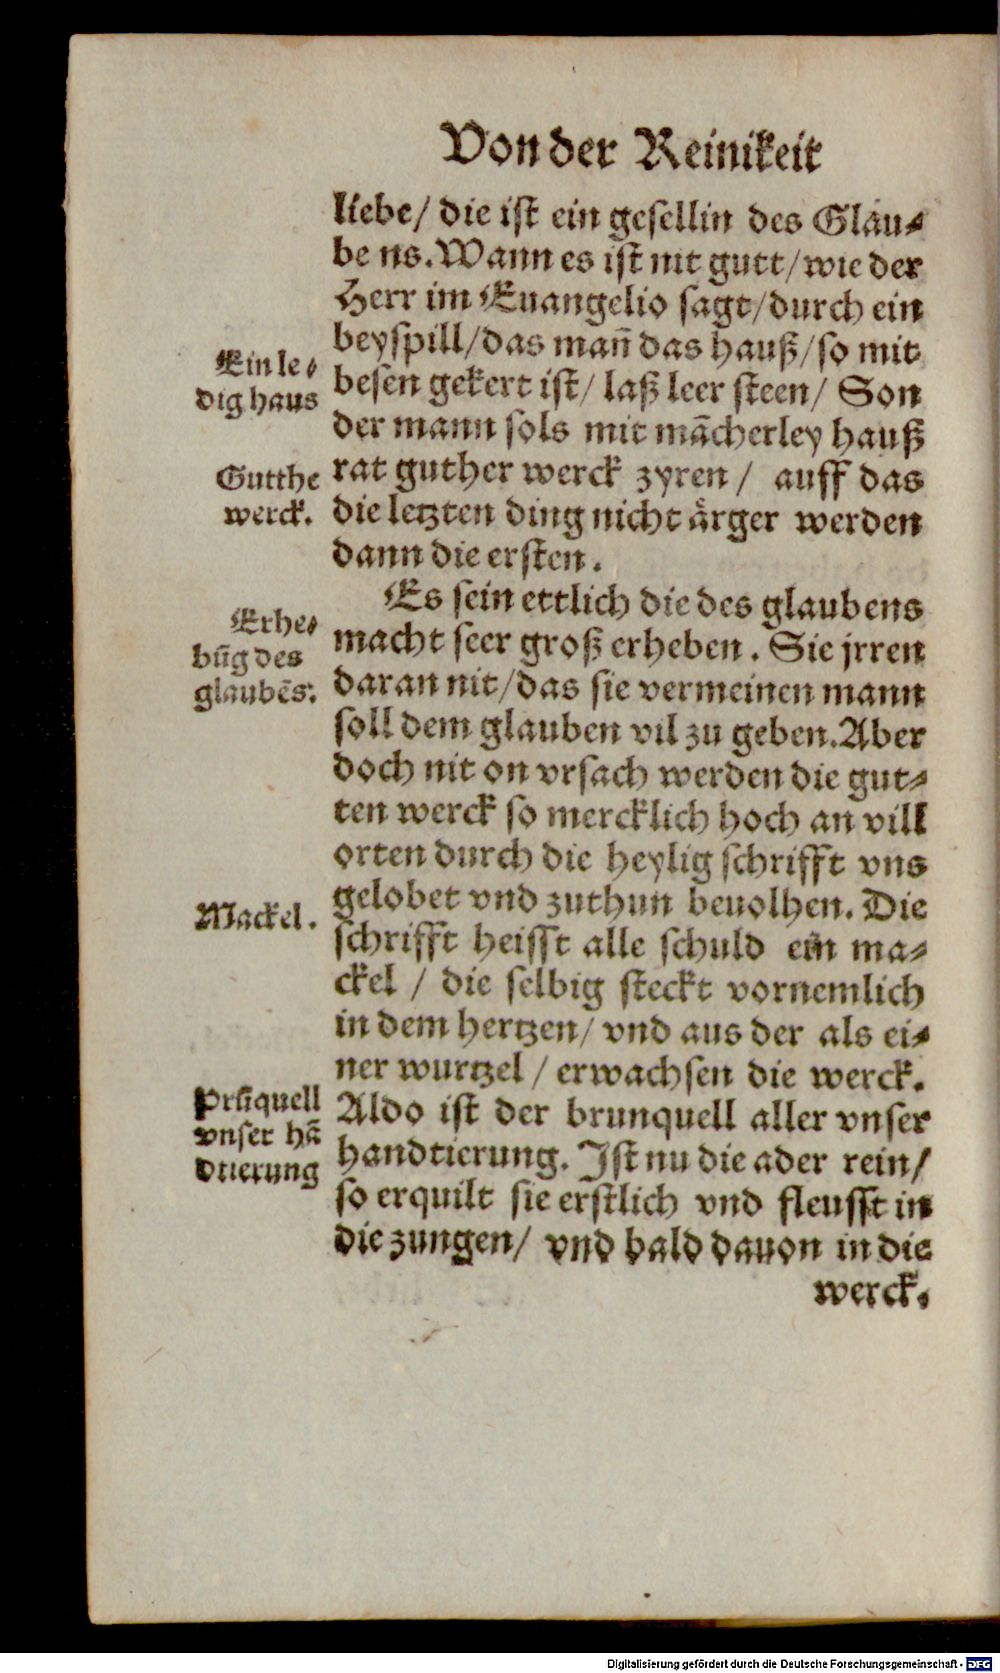 Von der Reinikeit
liebe/ die ist ein gesellin des Glau⸗
be ns. Wann es ist nit gutt/ wie der
Herr im Euangelio sagt/ durch ein
beyspill/ das mañ das hauß/ so mit
besen gekert ist/ laß leer steen/ Son
der mann sols mit mācherley hauß
rat guther werck zyren/ auff das
die letzten ding nicht ärger werden
dann die ersten.
Ein le⸗
dig haus
Gutthe
werck.
Es sein ettlich die des glaubens
macht seer groß erheben. Sie jrren
daran nit/ das sie vermeinen mann
soll dem glauben vil zu geben. Aber
doch nit on vrsach werden die gut⸗
ten werck so mercklich hoch an vill
orten durch die heylig schrifft vns
gelobet vnd zuthun beuolhen. Die
schrifft heisst alle schuld ein ma⸗
ckel / die selbig steckt vornemlich
in dem hertzen/ vnd aus der als ei⸗
ner wurtzel / erwachsen die werck.
Aldo ist der brunquell aller vnser
handtierung. Ist nu die ader rein/
so erquilt sie erstlich vnd fleusst in
die zungen/ vnd bald dauon in die
werck.
Erhe⸗
būg des
glaubēs.
Mackel.
Prūquell
vnser hā
dtierung
Digitalisierung gefördert durch die Deutsche Forschungsgemeinschaft - DFG